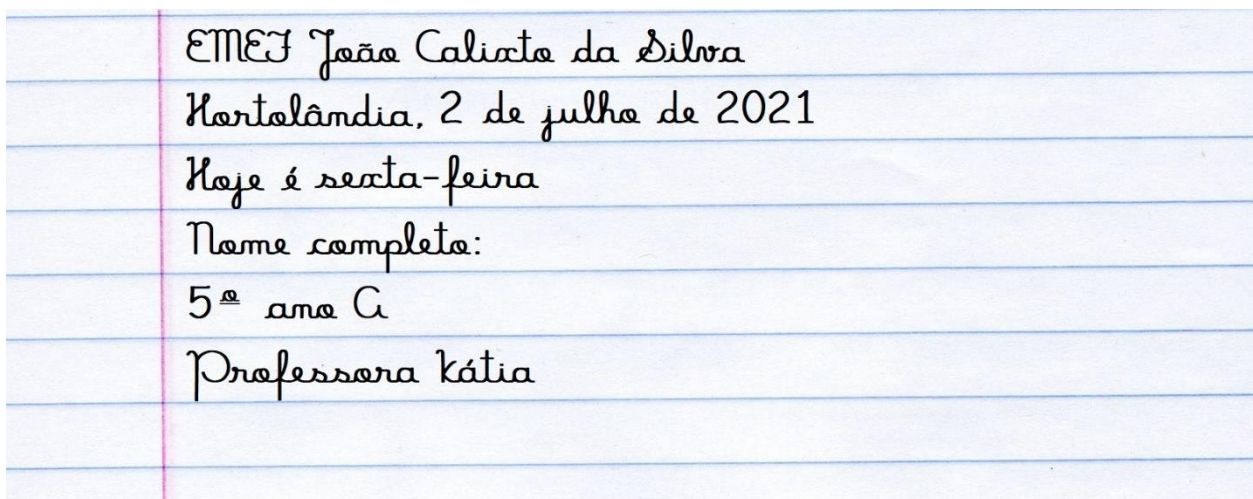 EMEF João Calixto da Silva
Hortolândia, 2 de julho de 2021
Hoje é sexta-feira
Nome completo:
5º ano A
Professora Kátia